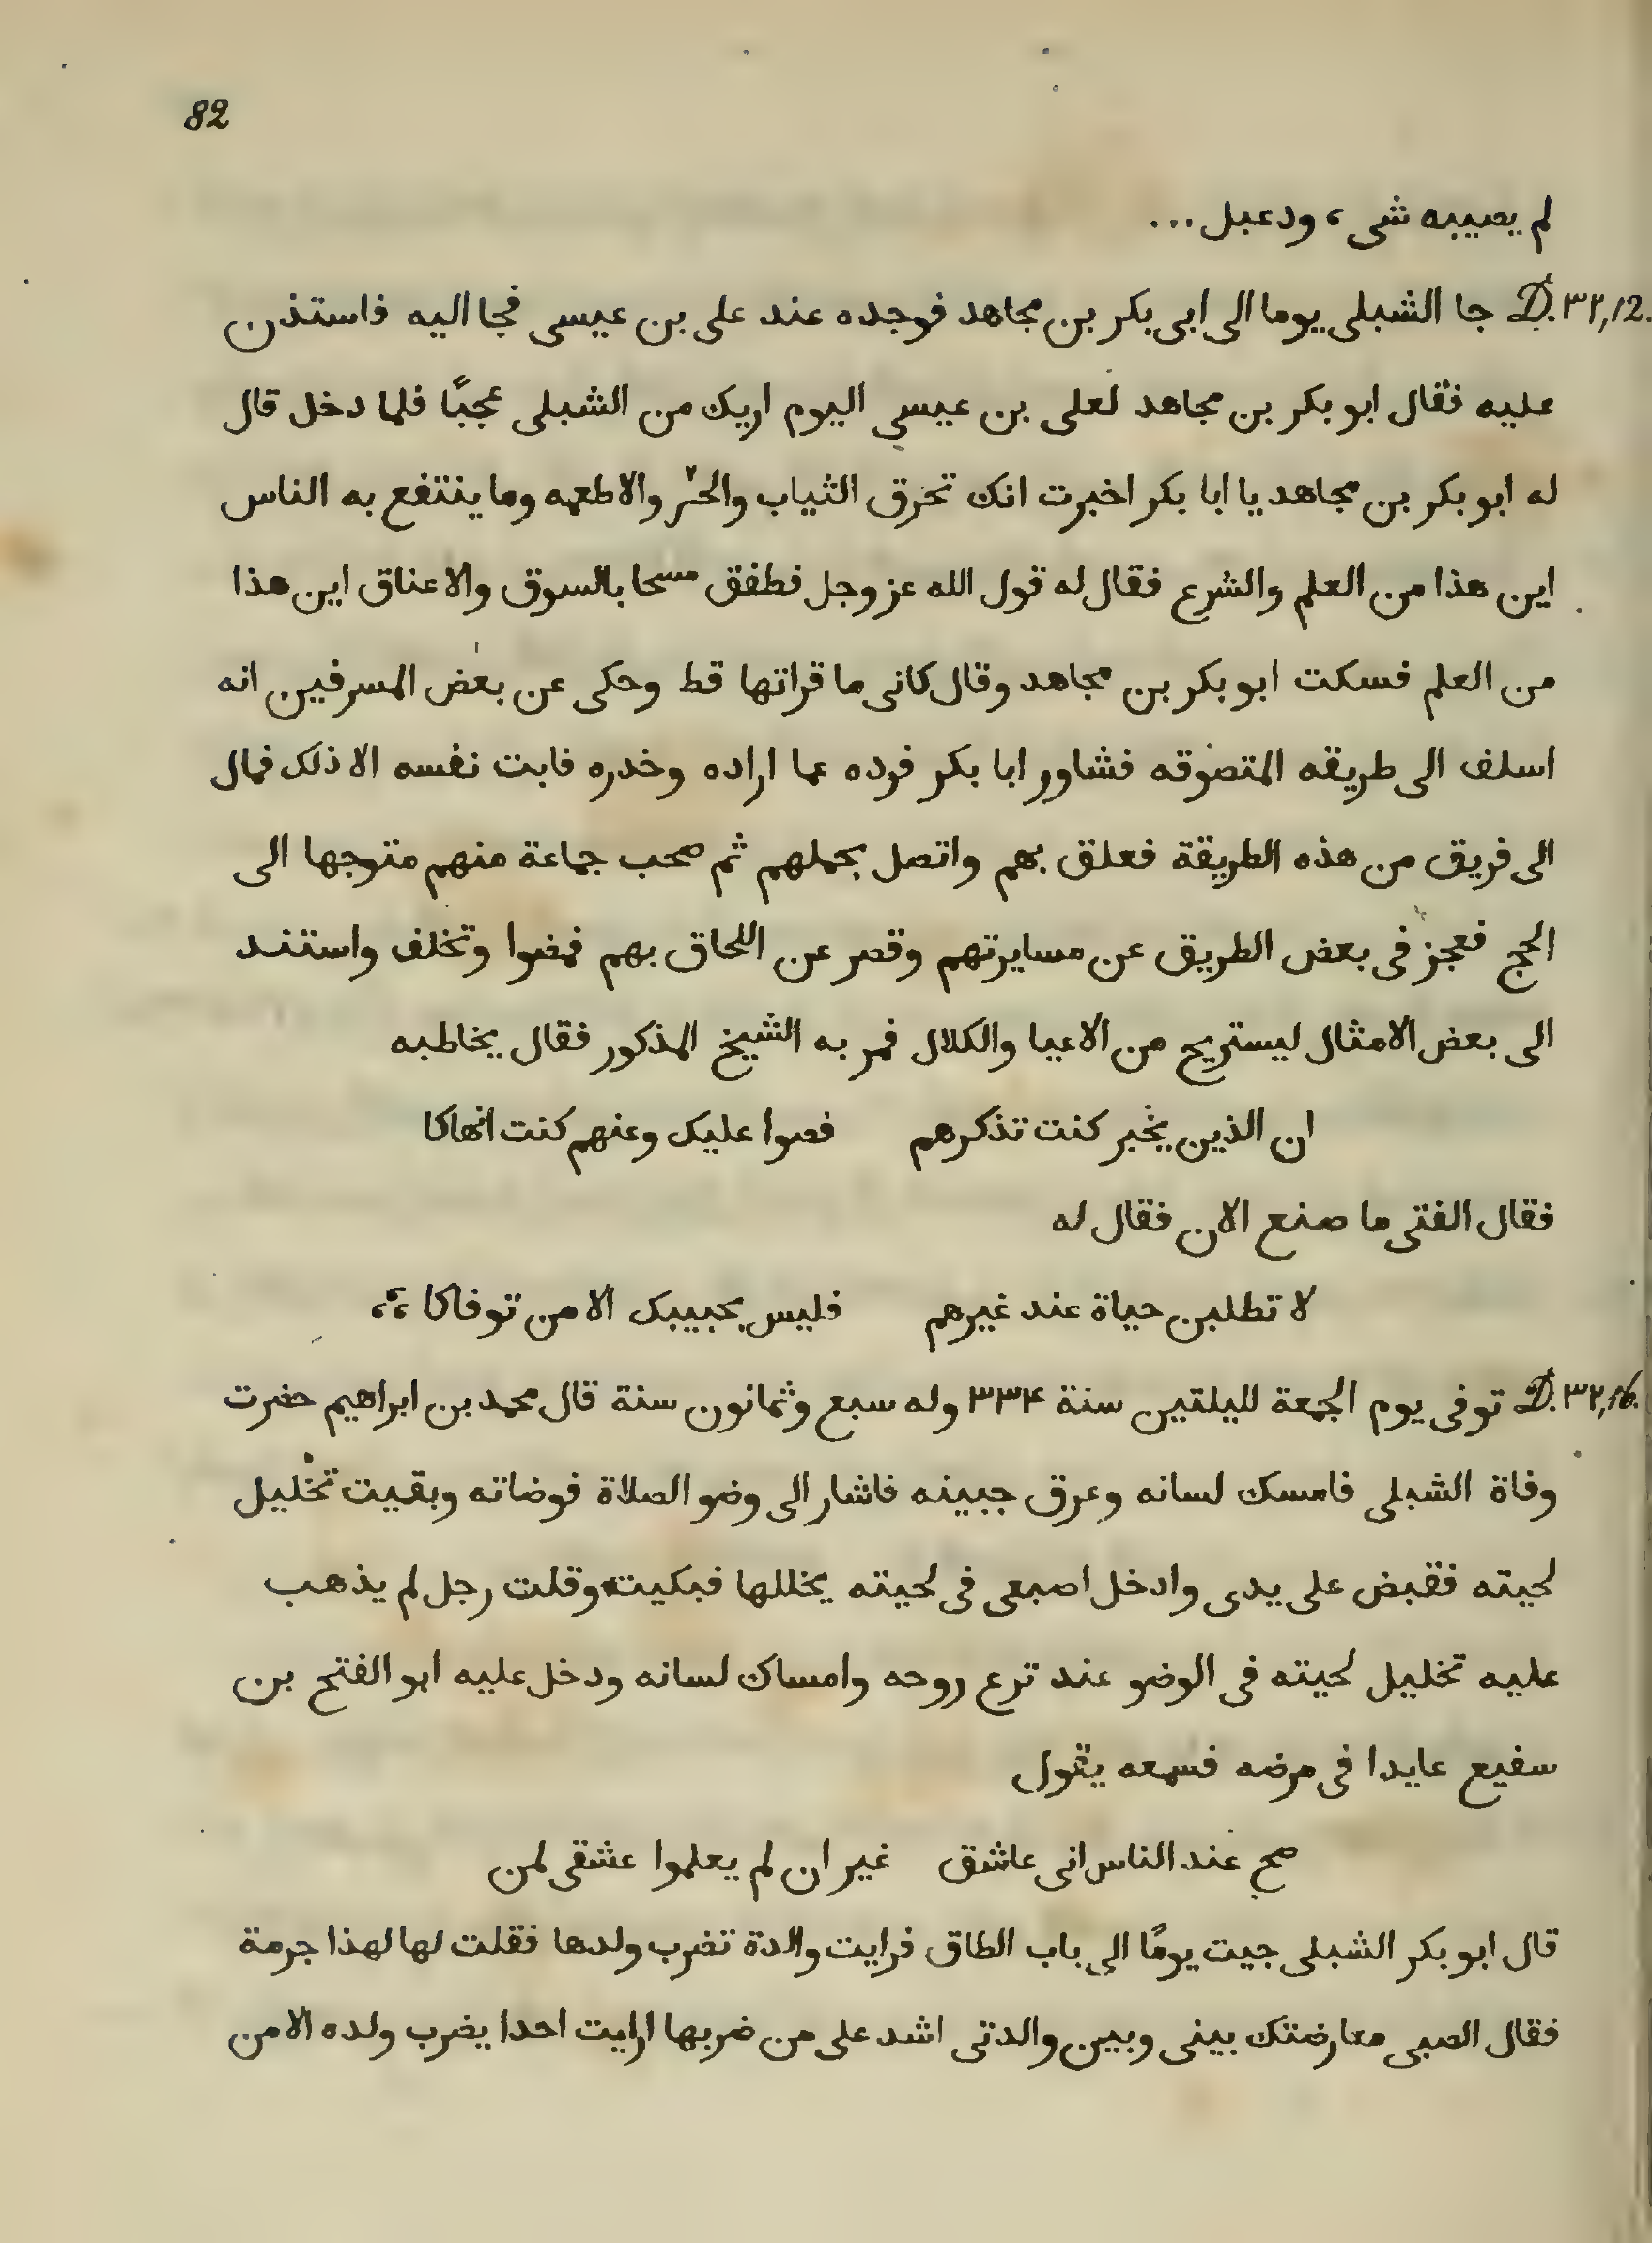 82
لم يصيبه شى، ودعبل ...
D.٣٢,12. جا الشبلى يوما الى ابى بكر بن مجاهد فوجده عند على بن عيسى فجا اليه فاستذن
عليه فقال ابو بكر بن مجاهد لعلى بن عيسى اليوم اريك من الشبلى عجبًا فلما دخل قال
له ابو بكر بن مجاهد يا ابا بكر اخبرت انك تحرق الثياب والاطعمه وما ينتفع به الناس
اين هذا من العلم والشرع فقال له قول الله عز وجل فطفق مسحا بالسوق والاعناق اين هذا
من العلم فسكت ابو بكر بن مجاهد وقال كانى ما قراتها قط وحكى عن بعض المسرفين انه
اسلف الى طريقه المتصوقه فشاور ابا بكر فرده عما اراده وخدره فابت نفسه الا ذلك فمال
الى فريق من هذه الطريقة فعلق بهم واتصل بجملهم ثم صحب جماعة منهم متوجها الى
الحج فعجز فى بعض الطريق عن مسايرتهم وقصر عن اللحاق بهم فمضوا وتخلف واستند
الى بعض الامثال ليستريح من الاعيا والكلال فمر به الشيخ المذكور فقال يخاطبه
ان الذين بخبر كنت تذكرهم فصوا عليك وعنهم كنت انهاكا
فقال الفتى ما صنع الان فقال له
لا تطلبن حياة عند غيرهم فليس بحبيبك الا من توفاكا ،،
D.٣٢,16. توفى يوم الجمعة لليلتين سنة ٣٣۴ وله سبع وثمانون سنة قال محمد بن ابراهيم حضرت
وفاة الشبلى فامسك لسانه وعرق جبينه فاشار الى وضو الصلاة فوضاته وبقيت تخليل
لحيته فقبض على يدى وادخل اصبعى فى لحيته يخللها فبكيت وقلت رجل لم يذهب
عليه تخليل لحيته فى الوضو عند ترع روحه وامساك لسانه ودخل عليه ابو الفتح بن
سفيع عايدا فى مرضه فسمعه يقول
صح عند الناس انى عاشق غير ان لم يعلموا عشقى لمن
قال ابو بكر الشبلى جيت يومًا الى باب الطاق فرايت والدة تضرب ولدها فقلت لها لهذا جرمة
فقال الصبى معارضتك بينى وبين والدتى اشد على من ضربها ارايت احدا يضرب ولده الا من